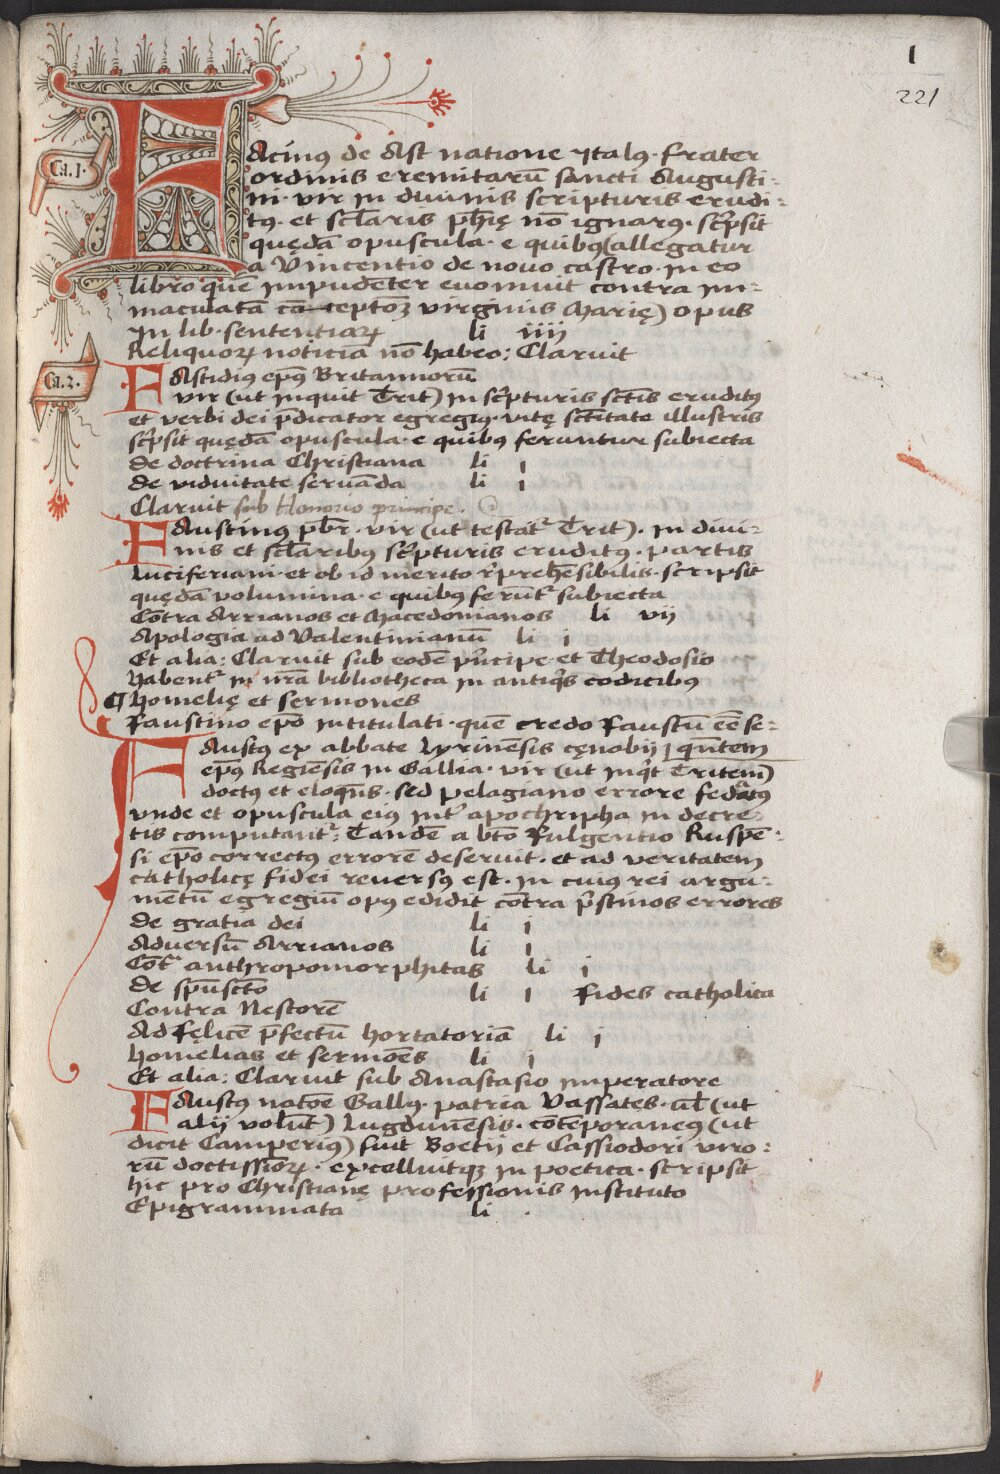 1
221
Ca. 1.
FAcinus de Ast natione ytalus · frater
ordinis eremitarū sancti Augusti-
ni · vir in diuinis scripturis erudi-
tus · et sclaris phię nō ignarus · scpsit
quędā opuscula · e quibus (allegatur
a Vincentio de nouo castro · in eo
libro quē impudēter euomuit contra im-
maculatā cōceptōꝫ virginis Marię) opus
In lib · sententiaꝝ li iiij
Reliquoꝝ noticiā nō habeo: Claruit
Ca. 2.
FAstidius epūs Britannorū
vir (ut inquit Trit) in scpturis sctīs eruditus
et verbi dei pdicator egregius · vitę sctītate illustris
scpsit quędā opuscula · e quibus feruntur subiecta
De doctrina Christiana li i
De viduitate seruāda li i
Claruit sub Honorio principe.
FAustinus pbr · vir (ut testatʳ Trit) · in diui-
nis et sclaribus scpturis eruditus · partis
Luciferiani · et ob id merito rprehēsibilis · scripsit
quędā volumina · e quibus ferūtʳ subiecta
Cōtra Arrianos et Macedonianos li vij
Apologia ad Valentinianū li i
Et alia: Claruit sub eodē pncipe et Theodosio
Habentʳ in nrā bibliotheca in antiqis codicibus
¶ Homelię et sermones
Faustino epō intitulati · quē credo Faustū eē se-
quntem
FAustus ex abbate Lyrinēsis cęnobij
epūs Regiēsis in Gallia · vir (ut inqit Tritem)
doctus et eloqns · sed pelagiano errore fedatus
vnde et opuscula eius intʳ apochripha in decre-
tis computantʳ: Tandē a btō Fulgentio Ruspē-
si epō correctus errorē deseruit · et ad veritatem
catholicę fidei reuersus est · in cuius rei argu-
mētū egregiū opus edidit cōtra pstinos errores
De gratia dei li i
Aduersū Arrianos li i
Cōtʳ anthropomorphitas li i
De spūsctō li i Fides catholica
Contra Nestorē
Ad Fęlicē pfectū hortatoriā li i
Homelias et sermōes li i
Et alia: Claruit sub Anastasio imperatore
FAustus natōe Gallus · patria Vassates · ul (ut
alij volūt) Lugdunēsis · cōtēporaneus (ut
dicit Camperius) fuit Boetij et Cassiodori viro-
rū doctissioꝝ · excelluitqꝫ in poetica · scripsit
hic pro Christianę professionis instituto
Epigrammata li .